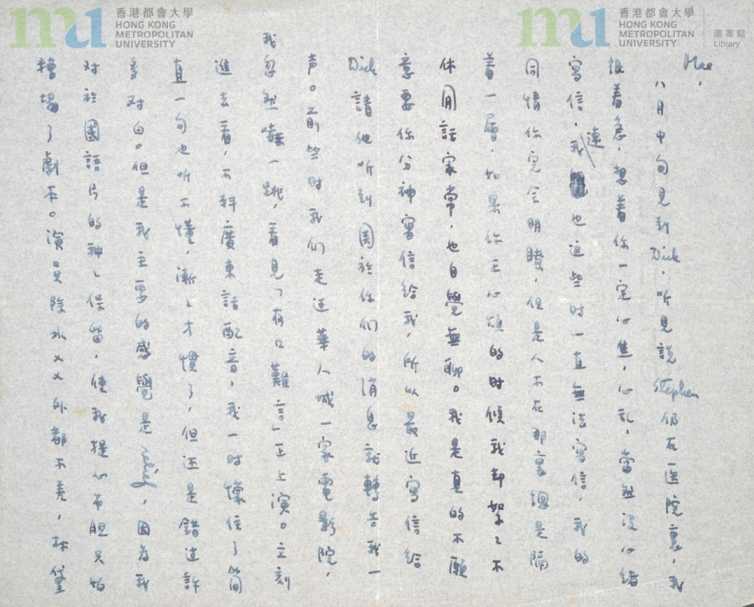 香港都會大學
HONG KONG
METROPOLITAN
UNIVERSITY
香港都會大學
HONG KONG
METROPOLITAN
UNIVERSITY
圖書館
Library
Mae,
八月中旬見到Dick，听見說Stephen仍在医院裏，我
很着急，想着你一定心焦，心乱，當然沒心緒
寫信，我遠也這些时一直無法寫信，我的
同情你完全明瞭，但是人不在那裏總是隔
着一層，如果你正心煩的时候我却絮々不
休閒話家常，也自覺無聊。我是真的不願
意要你分神寫信給我，所以最近寫信給
Dick請他听到関於你们的消息就轉告我一
声。前些时我们走過華人城一家電影院，
我忽然嚇一跳，看見「有口難言」正上演。立刻
進去看，不料廣東話配音，我一时愣住了簡
直一句也听不懂，漸々才慣了，但还是錯过許
多对白。但是我主要的感覺是relief，因为我
对於國語片的种々保留，使我提心吊胆只怕
糟塌了劇本。演員除水××外都不差，林黛